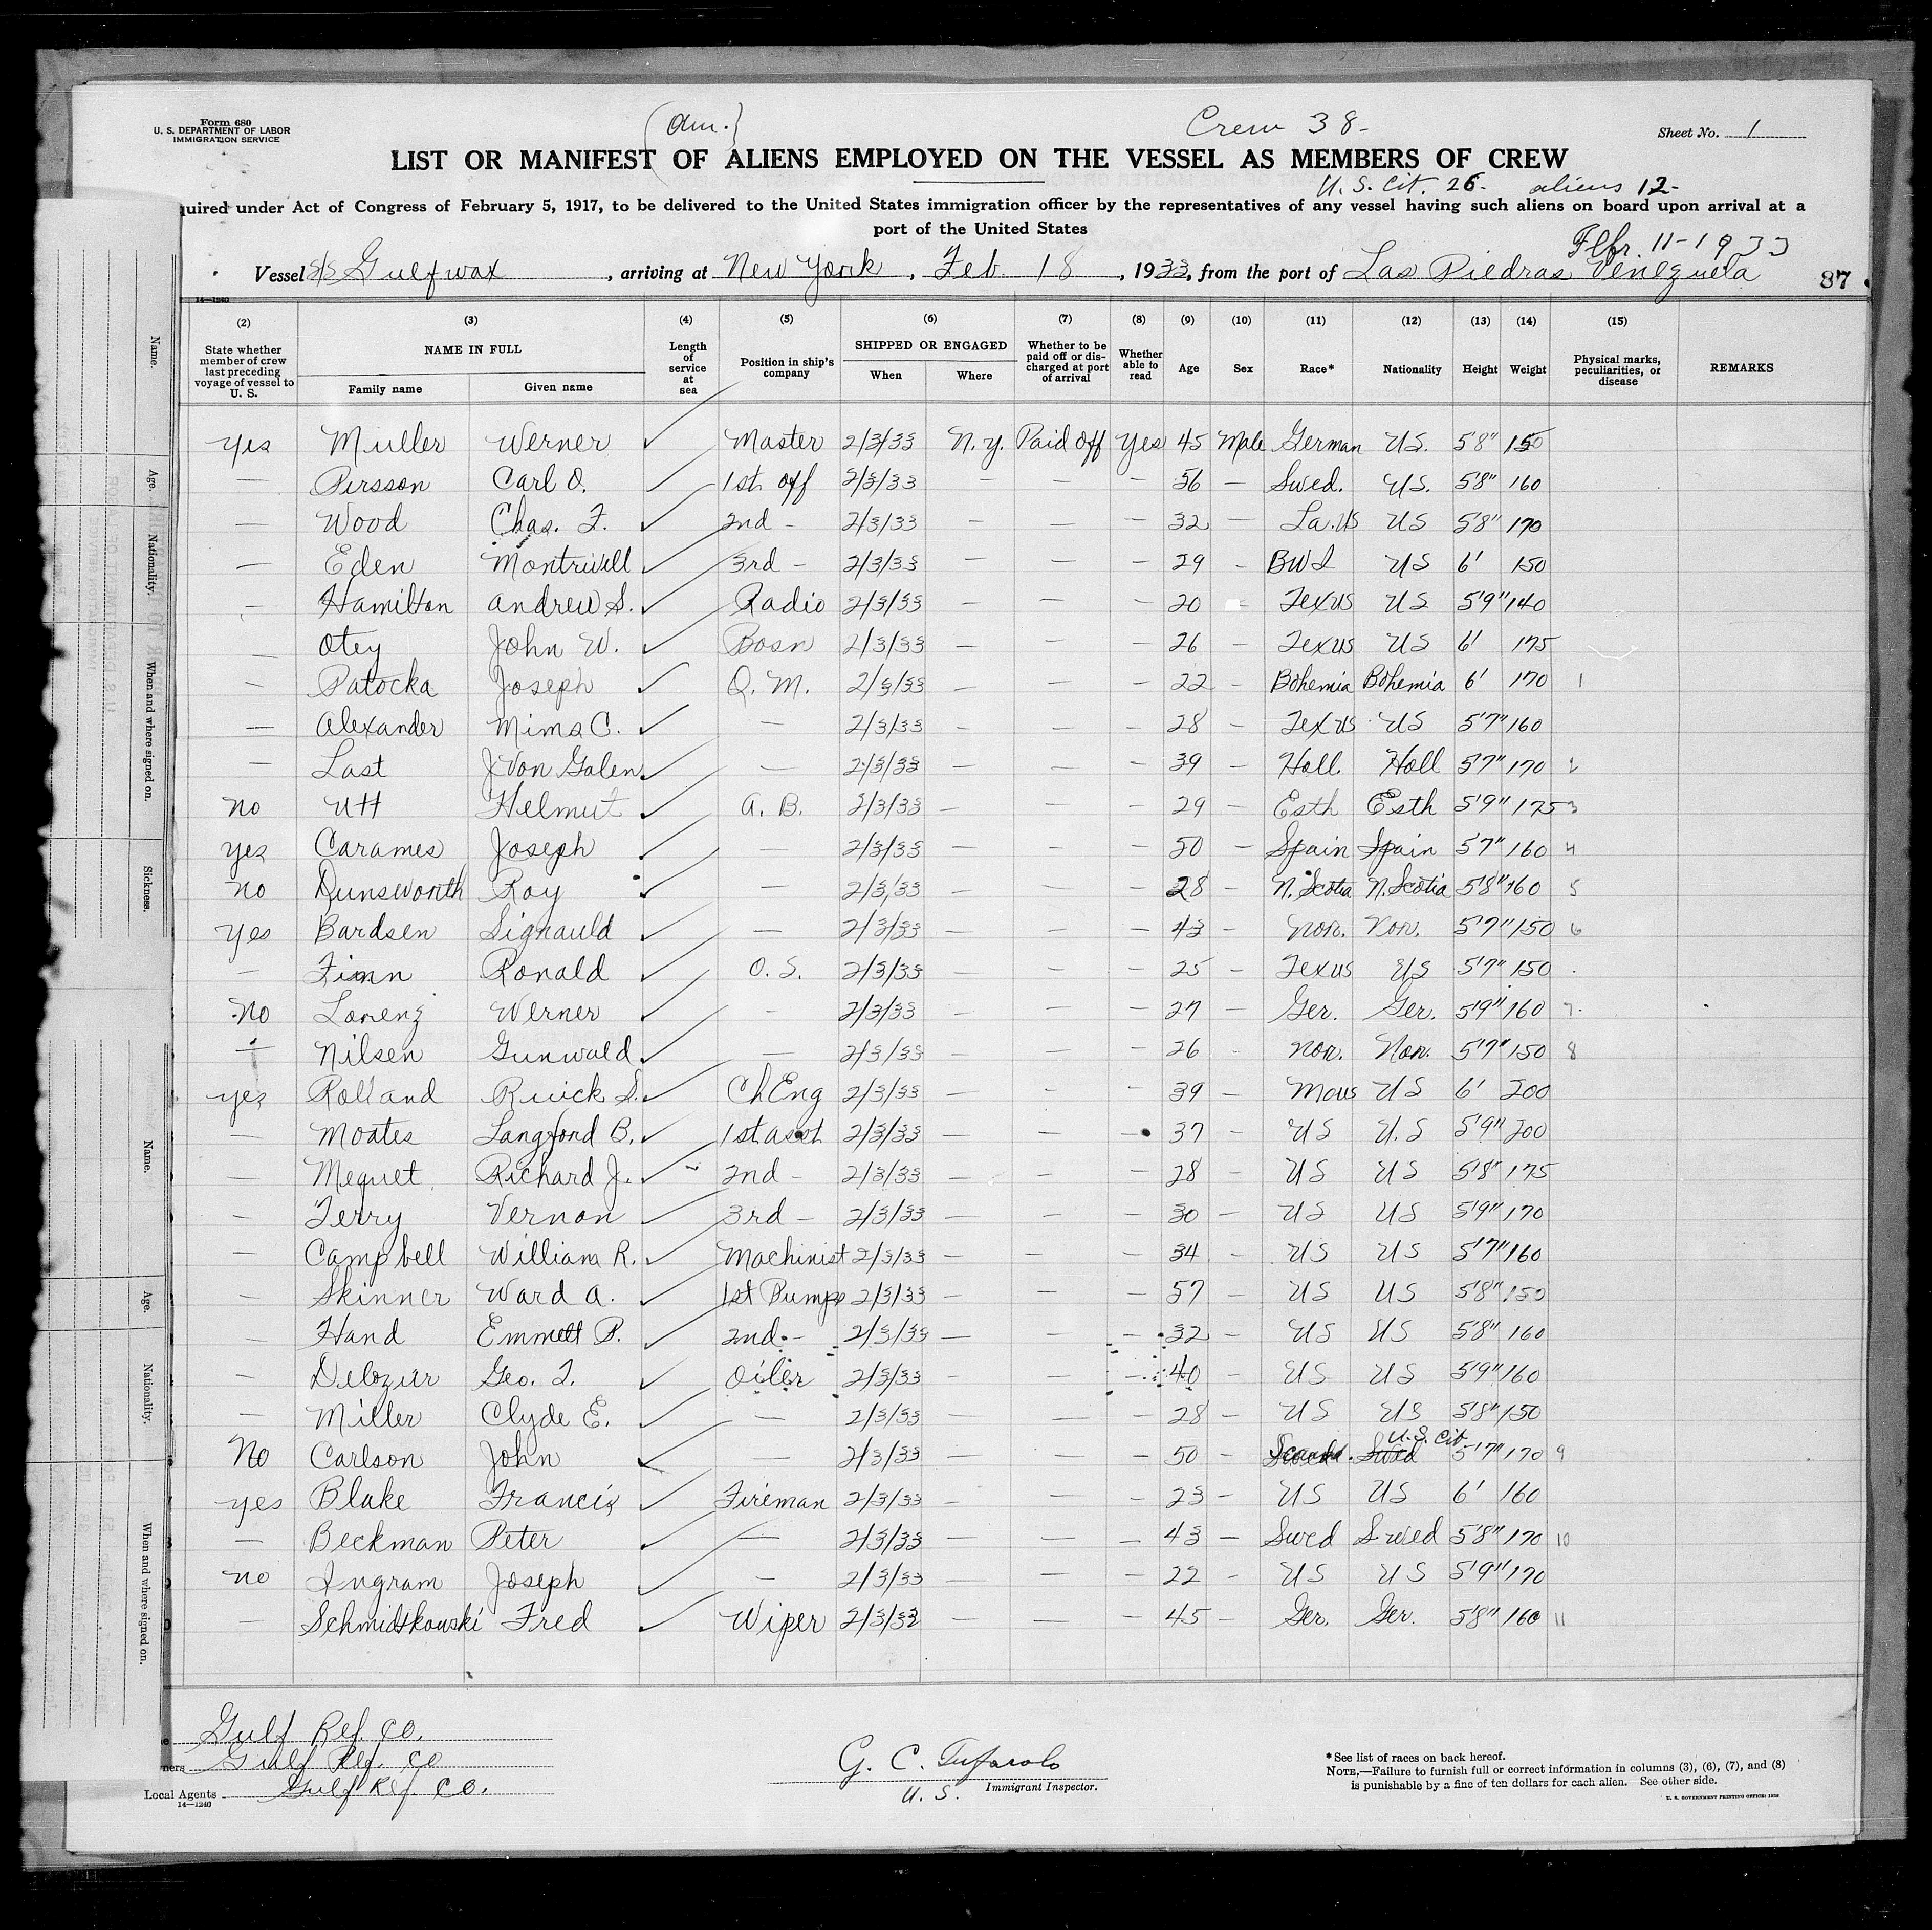 Form 680
U. S. DEPARTMENT OF LABOR
IMMIGRATION SERVICE
(Am.)
Crew 38-
Sheet No. 1
LIST OR MANIFEST OF ALIENS EMPLOYED ON THE VESSEL AS MEMBERS OF CREW
U. S. Cit. 26- aliens 12-
quired under Act of Congress of February 5, 1917, to be delivered to the United States immigration officer by the representatives of any vessel having such aliens on board upon arrival at a
port of the United States
11-1933
Vessel S/S Gulfwax, arriving at New York, Feb 18, 1933, from the port of Las Piedras Venezuela
87
14-1240
(2) (3) (4) (5) (6) (7) (8) (9) (10) (11) (12) (13) (14) (15)
State whether member of crew last preceding voyage of vessel to U. S. NAME IN FULL Family name Given name Length of service at sea Position in ship's company SHIPPED OR ENGAGED When Where Whether to be paid off or discharged at port of arrival Whether able to read Age Sex Race* Nationality Height Weight Physical marks, peculiarities, or disease REMARKS
Yes Muller Werner ✓ Master 2/3/33 N.Y. Paid Off Yes 45 Male German US. 5'8" 150
— Persson Carl O. ✓ 1st off 2/3/33 — — — 56 — Swed. US. 5'8" 160
— Wood Chas. F. ✓ 2nd - 2/3/33 — — — 32 — La. US US 5'8" 170
— Eden Montrivill ✓ 3rd - 2/3/33 — — — 29 — BWI US 6' 150
— Hamilton Andrew S. ✓ Radio 2/3/33 — — — 20 — Texus US 5'9" 140
— Otey John W. ✓ Bosn 2/3/33 — — — 26 — Texus US 6' 175
— Patocka Joseph ✓ Q. M. 2/3/33 — — — 22 — Bohemia Bohemia 6' 170 1
— Alexander Mims C. ✓ — 2/3/33 — — — 28 — Texus US 5'7" 160
— Last J Von Galen ✓ — 2/3/33 — — — 39 — Holl. Holl 5'7" 170 2
no Utt Helmut ✓ A. B. 2/3/33 — — — 29 — Esth Esth 5'9" 175 3
yes Carames Joseph ✓ — 2/3/33 — — — 50 — Spain Spain 5'7" 160 4
no Dunsworth Roy — 2/3/33 — — — 28 — N. Scotia N. Scotia 5'8" 160 5
yes Bardsen Signauld ✓ — 2/3/33 — — — 43 — Nor. Nor. 5'7" 150 6
— Finn Ronald ✓ O. S. 2/3/33 — — — 25 — Texus US 5'7" 150
No Lorenz Werner ✓ - 2/3/33 — — — 27 — Ger. Ger. 5'9" 160 7
— Nilsen Gunwald ✓ — 2/3/33 — — — 26 - Nor. Nor. 5'7" 150 8
yes Rolland Ruick S. ✓ Ch Eng 2/3/33 — - - 39 — US 6' 200
— Moates Langford B. ✓ 1st asst 2/3/33 — — — 37 — US U.S 5'9" 200
— Mequet Richard J. ✓ 2nd - 2/3/33 — — — 28 — US US 5'8" 175
— Terry Vernon ✓ 3rd - 2/3/33 — — — 30 — US US 5'9" 170
— Campbell William R. ✓ Machinist 2/3/33 — — — 34 — US US 5'7" 160
— Skinner Ward A. ✓ 1st Pump 2/3/33 — — — 57 — US US 5'8" 150
— Hand Emmett P. ✓ 2nd - 2/3/33 — — — 32 — US US 5'8" 160
— Delozier Geo. T. ✓ Oiler 2/3/33 — — — 40 — US US 5'9" 160
— Miller Clyde E. ✓ — 2/3/33 — — — 28 — US US 5'8" 150
No Carlson John ✓ — 2/3/33 — — — 50 — Scand. Swed U.S. Cit 5'7" 170 9
yes Blake Francis ✓ Fireman 2/3/33 - — — 23 — US US 6' 160
— Beckman Peter ✓ — 2/3/33 — — — 43 — Swed Swed 5'8" 170 10
no Ingram Joseph ✓ — 2/3/33 — — — 22 - US US 5'9" 170
— Schmidtkowski Fred ✓ Wiper 2/3/33 — — — 45 — Ger. Ger. 5'8" 160 11
Name.
Age.
Nationality.
When and where signed on.
Sickness.
Name.
Age.
Nationality.
When and where signed on.
Gulf Ref. Co.
ners Gulf Ref. Co
Local Agents Gulf Ref. Co.
14-1240
G. C. Tufarolo
U. S. Immigrant Inspector.
*See list of races on back hereof.
NOTE.—Failure to furnish full or correct information in columns (3), (6), (7), and (8)
is punishable by a fine of ten dollars for each alien. See other side.
U. S. GOVERNMENT PRINTING OFFICE: